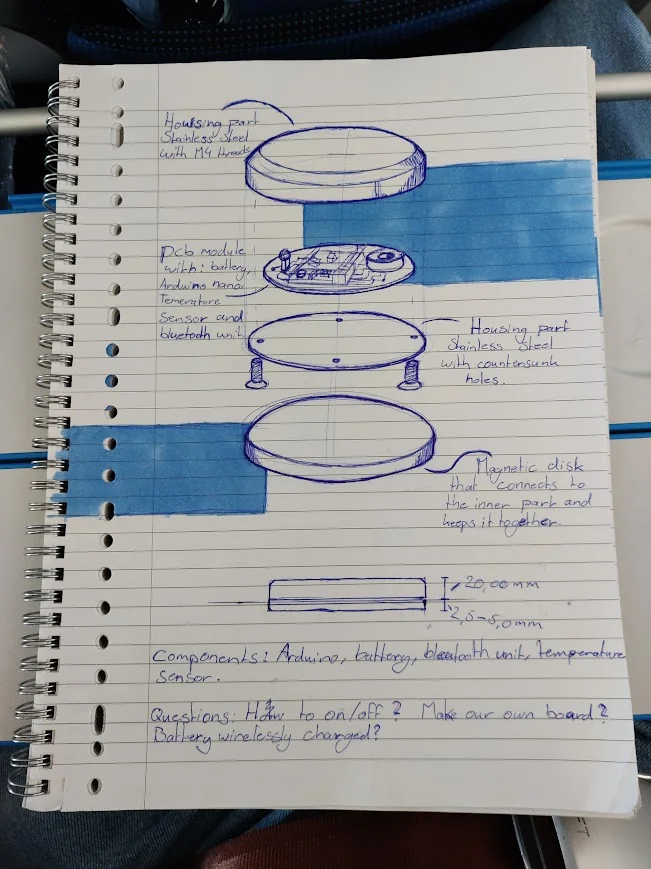 Housing part
Stainless Steel
with M4 threads
pcb module
with: battery,
Arduino nano,
Temerature
sensor and
bluetooth unit
Housing part
Stainless Steel
with countersunk
holes.
Magnetic disk
that connects to
the inner part and
keeps it together.
20,00 mm
2,5-5,0mm
Components: Arduino, battery, bluetooth unit, temperature
sensor.
Questions: How to on/off? Make our own board?
Battery wirelessly charged?